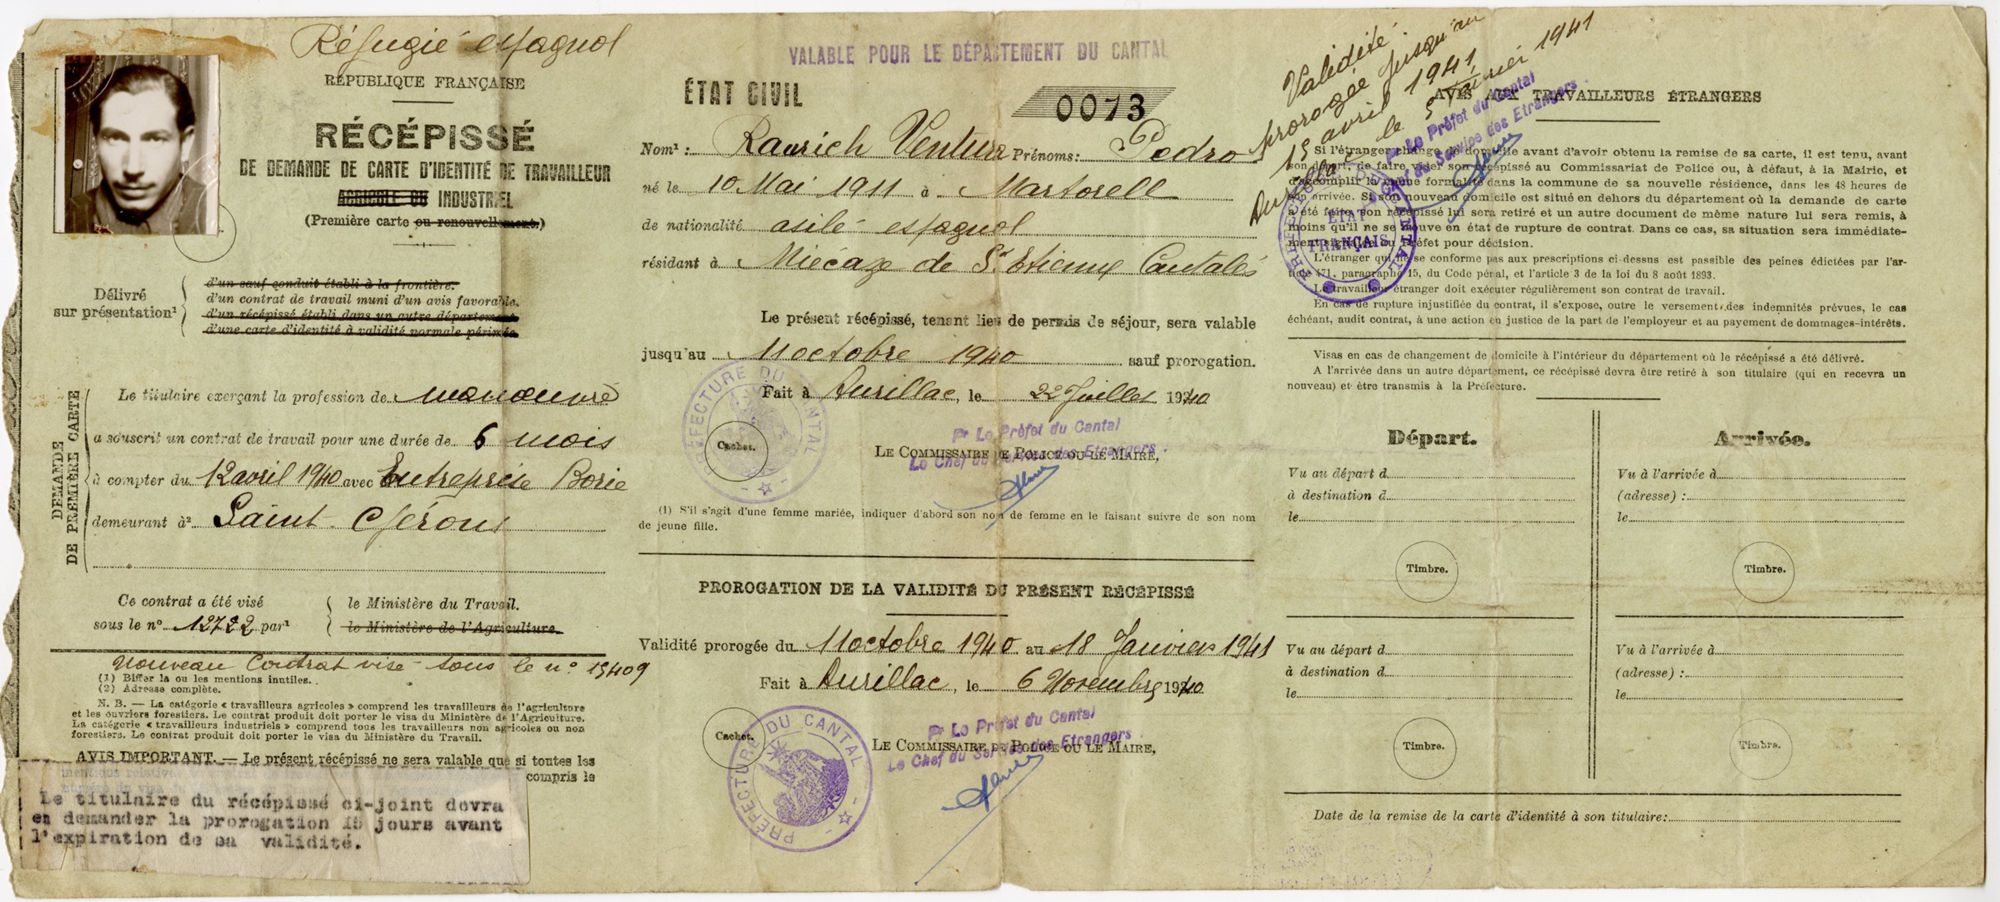 Réfugié espagnol
RÉPUBLIQUE FRANÇAISE
RÉCÉPISSÉ
DE DEMANDE DE CARTE D'IDENTITÉ DE TRAVAILLEUR
AGRICOLE OU INDUSTRIEL
(Première carte ou renouvellement.)
Délivré
sur présentation¹
d'un sauf conduit établi à la frontière.
d'un contrat de travail muni d'un avis favorable.
d'un récépissé établi dans un autre département
d'une carte d'identité à validité normale périmée
DEMANDE
DE PREMIÈRE CARTE
Le titulaire exerçant la profession de manoeuvre
a souscrit un contrat de travail pour une durée de 6 mois
à compter du 12 avril 1940 avec Entreprise Borie
demeurant à² Saint Gérons
Ce contrat a été visé
sous le n° 12722 par¹
le Ministère du Travail.
le Ministère de l'Agriculture.
Nouveau Contrat visé sous le n° 15409
(1) Biffer la ou les mentions inutiles.
(2) Adresse complète.
N. B. — La catégorie « travailleurs agricoles » comprend les travailleurs de l'agriculture
et les ouvriers forestiers. Le contrat produit doit porter le visa du Ministère de l'Agriculture.
La catégorie « travailleurs industriels » comprend tous les travailleurs non agricoles ou non
forestiers. Le contrat produit doit porter le visa du Ministère du Travail.
AVIS IMPORTANT. — Le présent récépissé ne sera valable que si toutes les
compris le
Le titulaire du récépissé ci-joint devra
en demander la prorogation 15 jours avant
l'expiration de sa validité.
VALABLE POUR LE DÉPARTEMENT DU CANTAL
ÉTAT CIVIL
0073
Nom¹ : Raurich Ventura Prénoms : Pedro
né le 10 Mai 1911 à Martorell
de nationalité asilé espagnol
résidant à Miécaze de St Etienne Cantalès
Le présent récépissé, tenant lieu de permis de séjour, sera valable
jusqu'au 11 octobre 1940 sauf prorogation.
Fait à Aurillac, le 22 Juillet 1940
PRÉFECTURE DU CANTAL
Cachet.
Pr Le Préfet du Cantal
Le Chef du Service des Etrangers.
LE COMMISSAIRE DE POLICE OU LE MAIRE,
(1) S'il s'agit d'une femme mariée, indiquer d'abord son nom de femme en le faisant suivre de son nom
de jeune fille.
PROROGATION DE LA VALIDITÉ DU PRÉSENT RÉCÉPISSÉ
Validité prorogée du 11 octobre 1940 au 18 Janvier 1941
Fait à Aurillac, le 6 Novembre 1940
Cachet.
PRÉFECTURE DU CANTAL
Pr Le Préfet du Cantal
Le Chef du Service des Etrangers.
LE COMMISSAIRE DE POLICE OU LE MAIRE,
Validité
prorogée jusqu'au
15 avril 1941
Aurillac le 5 Février 1941
Pr Le Préfet du Cantal
Chef du Service des Etrangers.
ÉTAT
FRANÇAIS
AVIS AUX TRAVAILLEURS ÉTRANGERS
Si l'étranger change de domicile avant d'avoir obtenu la remise de sa carte, il est tenu, avant
son départ, de faire viser son récépissé au Commissariat de Police ou, à défaut, à la Mairie, et
d'accomplir la même formalité dans la commune de sa nouvelle résidence, dans les 48 heures de
son arrivée. Si son nouveau domicile est situé en dehors du département où la demande de carte
a été faite, son récépissé lui sera retiré et un autre document de même nature lui sera remis, à
moins qu'il ne se trouve en état de rupture de contrat. Dans ce cas, sa situation sera immédiate-
ment signalée au Préfet pour décision.
L'étranger qui ne se conforme pas aux prescriptions ci-dessus est passible des peines édictées par l'ar-
ticle 471, paragraphe 15, du Code pénal, et l'article 3 de la loi du 8 août 1893.
Le travailleur étranger doit exécuter régulièrement son contrat de travail.
En cas de rupture injustifiée du contrat, il s'expose, outre le versement des indemnités prévues, le cas
échéant, audit contrat, à une action en justice de la part de l'employeur et au payement de dommages-intérêts.
Visas en cas de changement de domicile à l'intérieur du département où le récépissé a été délivré.
A l'arrivée dans un autre département, ce récépissé devra être retiré à son titulaire (qui en recevra un
nouveau) et être transmis à la Préfecture.
Départ.
Vu au départ d
à destination d
le
Timbre.
Vu au départ d
à destination d
le
Timbre.
Arrivée.
Vu à l'arrivée à
(adresse) :
le
Timbre.
Vu à l'arrivée à
(adresse) :
le
Timbre.
Date de la remise de la carte d'identité à son titulaire :